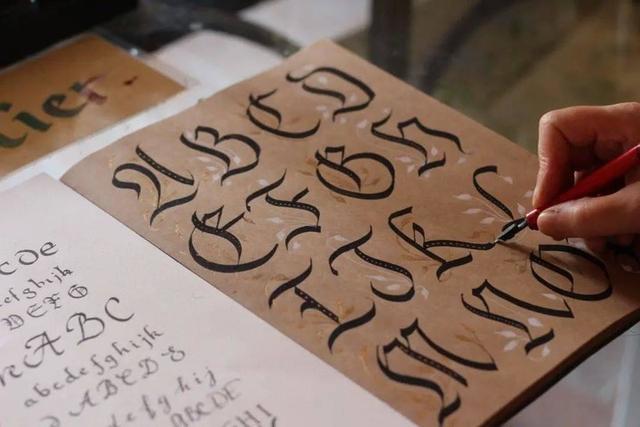 lier
A B C D
E F G H
I J K L
M N O
cde
efghijk
DEFG
ABC
abcdefghijk
ABCDE
efghij
ABCDE
GHI